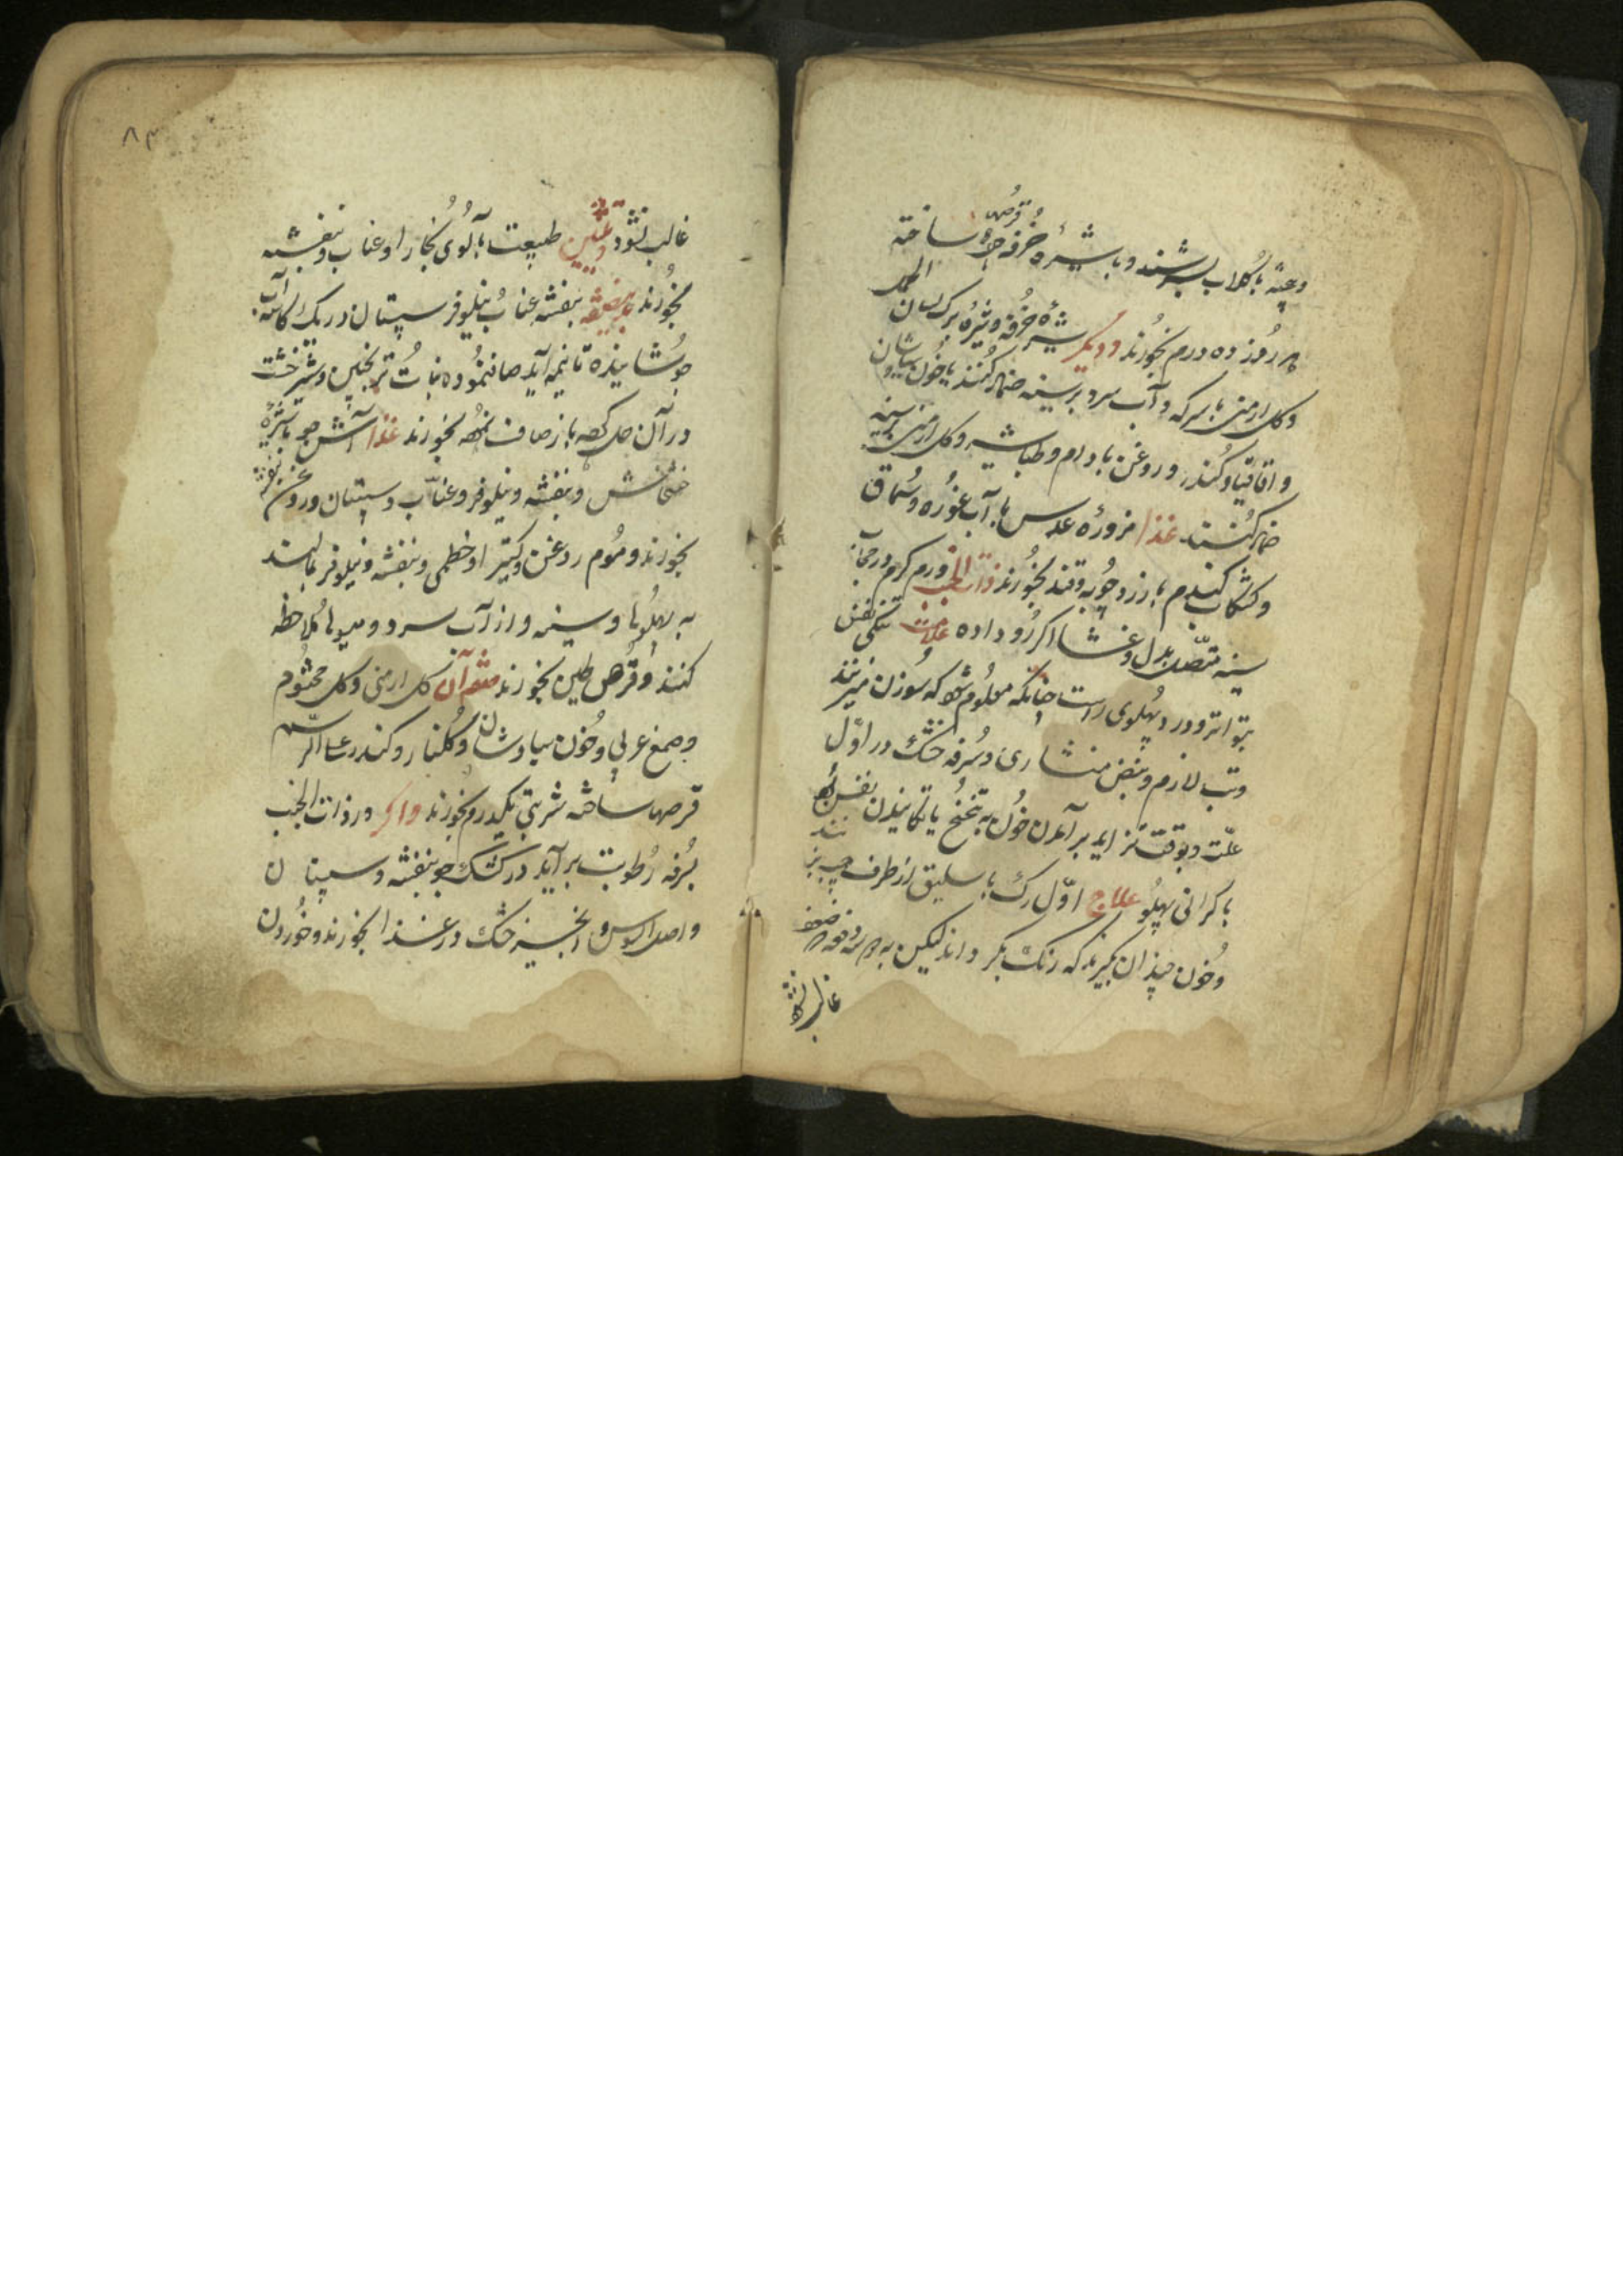 وعیه با گلاب بسرشند و با شیرهٔ خرفه قرصها ساخته
هر روز ده درم بخورند و دیگر شیرهٔ خرفه و شیرهٔ برک لسان الحمل
و کل ارمنی با سرکه و آب سرد بر سینه ضماد کنند یا خون سیاوشان
و اقاقیا و کندر و روغن بادام و طباشیر و کل ارمنی بر سینه
ضماد کنند غذا مزورهٔ عدس با آب غوره و سماق
و کشکاب کندم با زردچوبه و قند بخورند ذات الجنب ورم کرم در حجاب
سینه متصل بدل و غشا اکر رو داده علامت تنکی نفس
بتواتر و درد پهلوی راست چنانکه معلوم شود که سوزن میزنند
و تب لازم و نبض منشاری و سرفه خشک در اول
علت و بوقت تزاید بر آمدن خون به تنحنح یا تکانیدن نفس
با کرانی پهلو علاج اول رک باسلیق از طرف چپ
و خون چندان بکیرند که رنک بکرداند لیکن به دو سه دفعه ضعف
غالب نشود
۸۳
غالب نشود و تلیین طبیعت با آلوی بخارا و عناب و بنفشه
بخورند بنفشه عناب نیلوفر سپستان در یک کاسه آب
جوشانیده تا نیمه آید صاف نموده نبات ترنجبین و شیرخشت
در آن حل کرده باز صاف نموده بخورند غذا آش جو با شیرهٔ
خشخاش و بنفشه و نیلوفر و عناب و سپستان و روغن بنفشه
بخورند و موم روغن و کتیرا و خطمی و بنفشه و نیلوفر بمالند
به پهلوها و سینه و از آب سرد و میوها ملاحظه
کنند و قرص طین بخورند صفت آن کل ارمنی و کل مختوم
و صمغ عربی و خون سیاوشان و کلنار و کندر علی الرسم
قرصها ساخته شربتی یکدرم بخورند و اکر در ذات الجنب
بسرفه رطوبت بر آید در کشک جو بنفشه و سپستان
و اصل السوس و انجیر خشک در غذا بخورند و خوردن